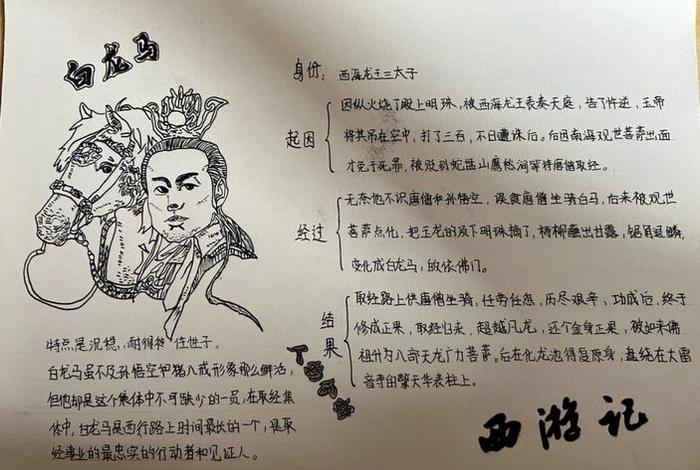 白龙马
身份: 西海龙王三太子
起因
因纵火烧了殿上明珠,被西海龙王表奏天庭,告了忤逆,玉帝
将其吊在空中,打了三百,不日遭诛后。后因南海观世菩萨出面
才免于死罪,被贬到蛇盘山鹰愁涧等待唐僧取经。
经过
无奈他不识唐僧和孙悟空,误食唐僧坐骑白马,后来被观世
菩萨点化,把玉龙的颈下明珠摘了,杨柳蘸出甘露,锯角退鳞,
变化成白龙马,皈依佛门。
结果
取经路上供唐僧坐骑,任劳任怨,历尽艰辛,功成后,终于
修成正果,取经归来,超越凡龙,还个金身正果,被如来佛
祖升为八部天龙广力菩萨。后在化龙池得复原身,盘绕在大雷
音寺的擎天华表柱上。
特点是沉稳,耐得住性子。
白龙马虽不及孙悟空和猪八戒形象那么鲜活,
但他却是这个集体中不可缺少的一员,在取经集
体中,白龙马是西行路上时间最长的一个,是取
经事业的最忠实的行动者和见证人。
西游记